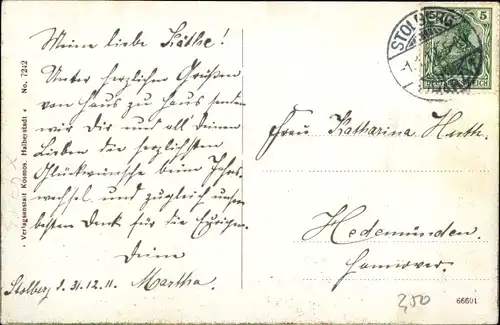 Meine liebe Käthe!
Unter herzlichen Grüßen
von Haus zu Haus senden
wir Dir und all' Deinen
Lieben die herzlichsten
Glückwünsche beim Jahres
wechsel und zugleich unsern
besten Dank für die
Deine
Martha.
Stolberg d. 31.12.11.
Verlagsanstalt Kosmos, Halberstadt No. 7242
STOLBERG
5
Frau Katharina Huth.
Hedemünden.
Hannover.
66601
2,50